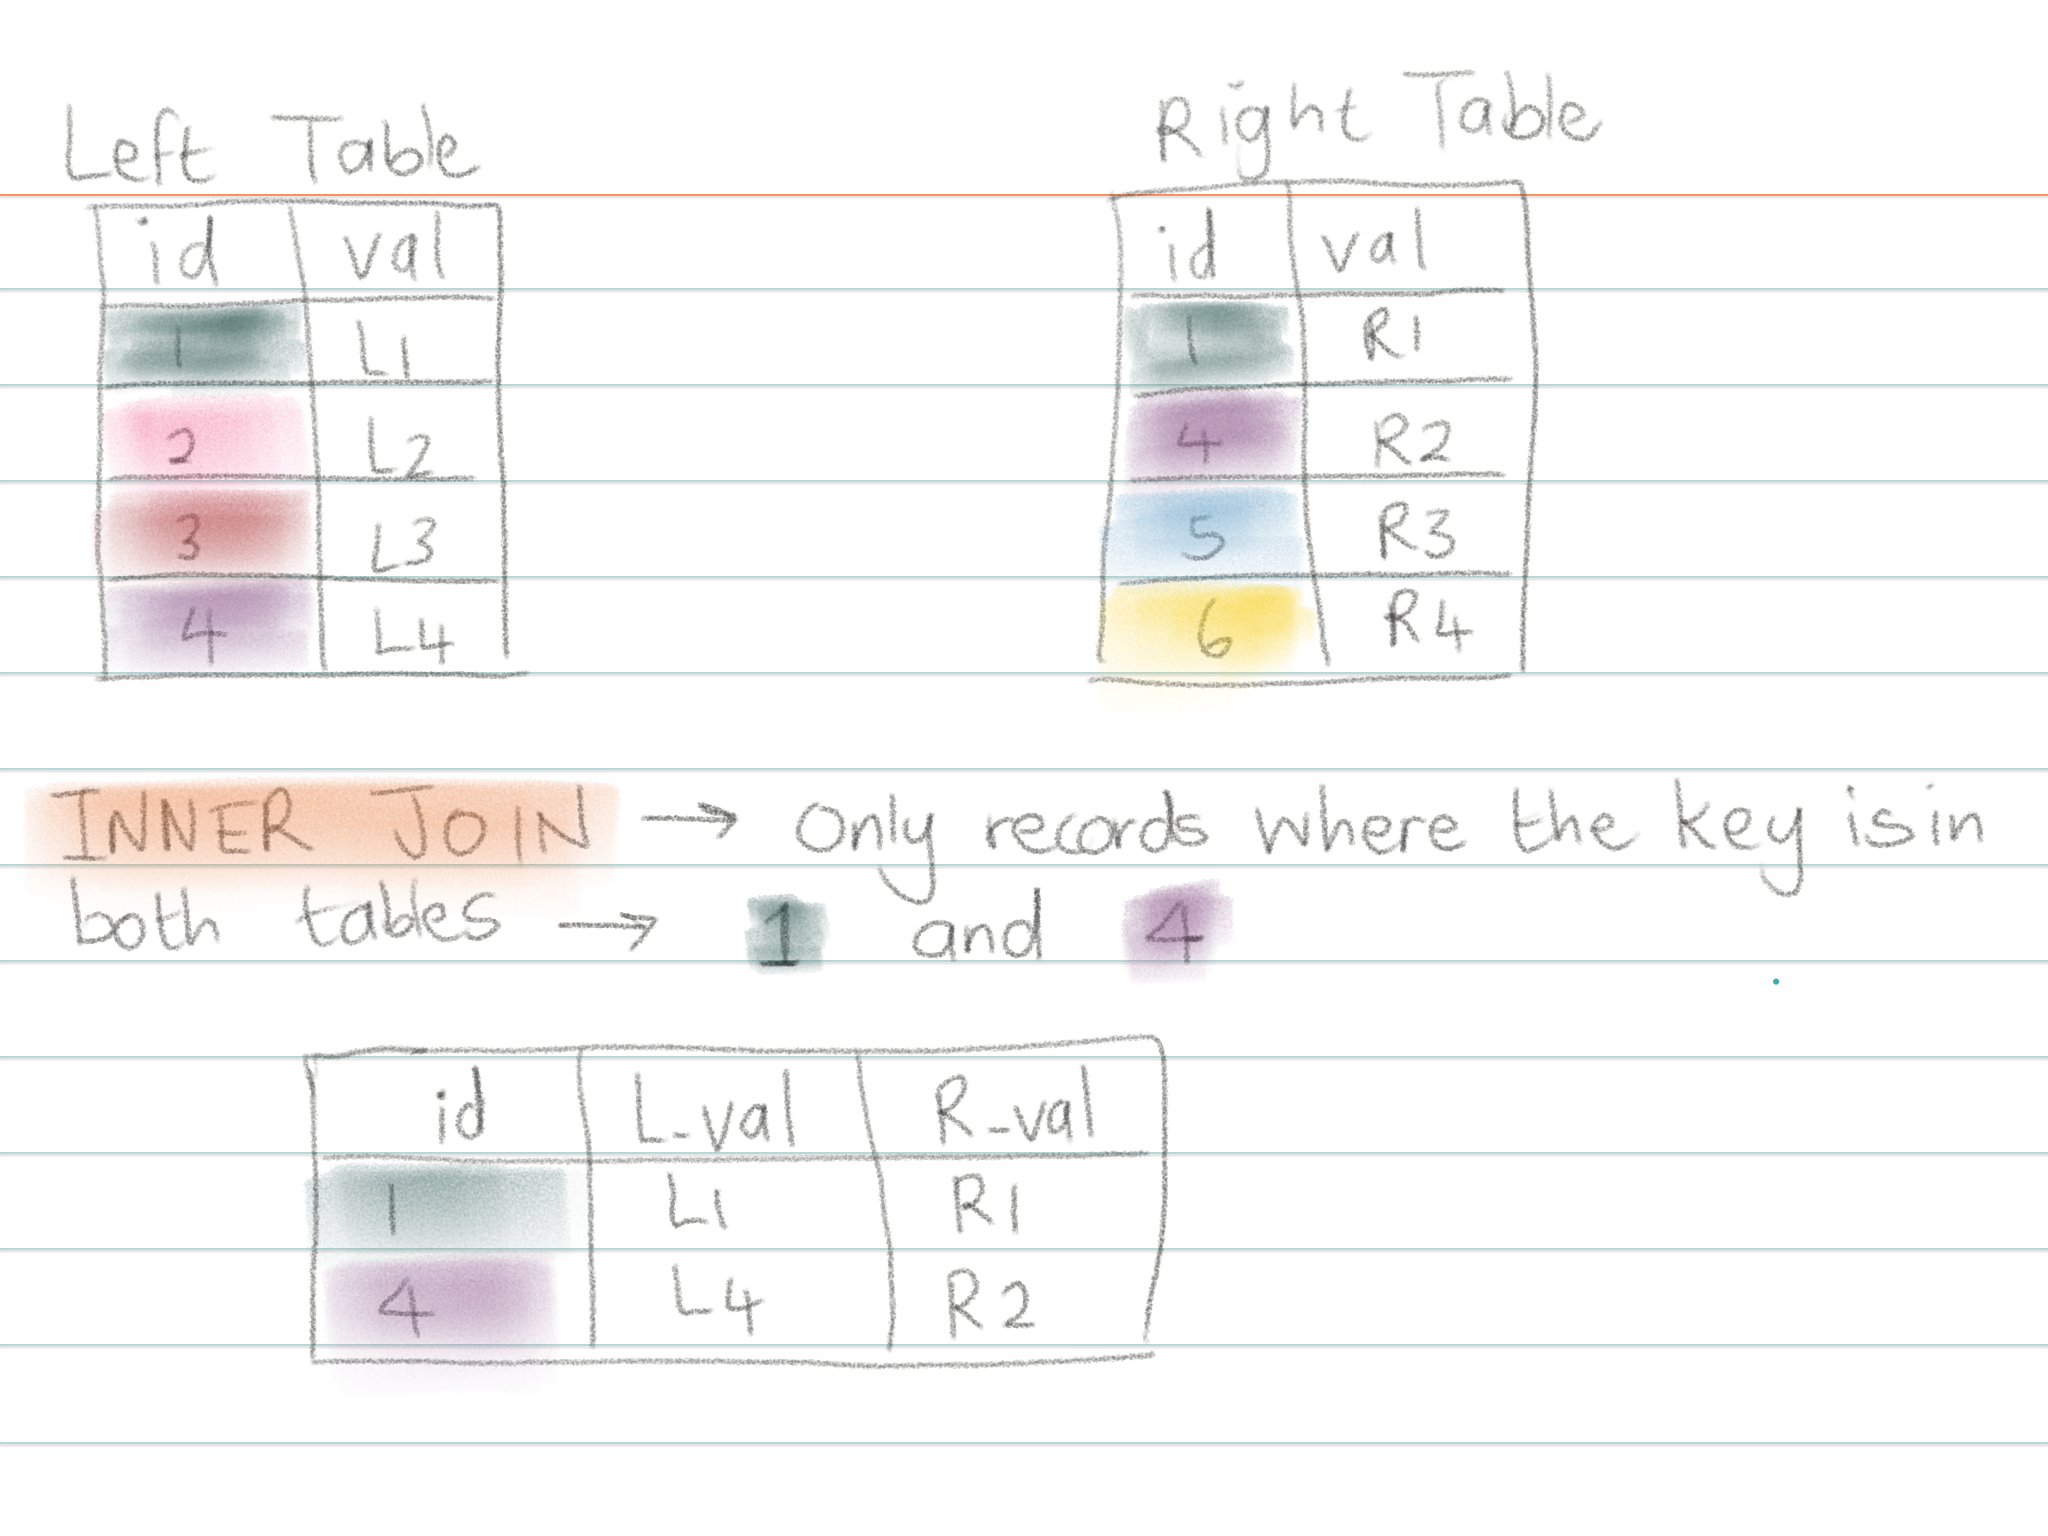 Left Table
Right Table
id val
1 L1
2 L2
3 L3
4 L4
id val
1 R1
4 R2
5 R3
6 R4
INNER JOIN → Only records where the key is in
both tables → 1 and 4
id L_val R_val
1 L1 R1
4 L4 R2